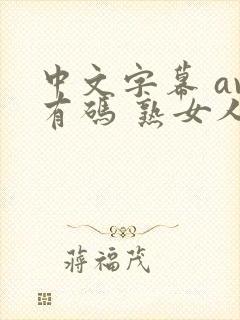 中文字幕 av
有碼 熟女人
蔣福茂